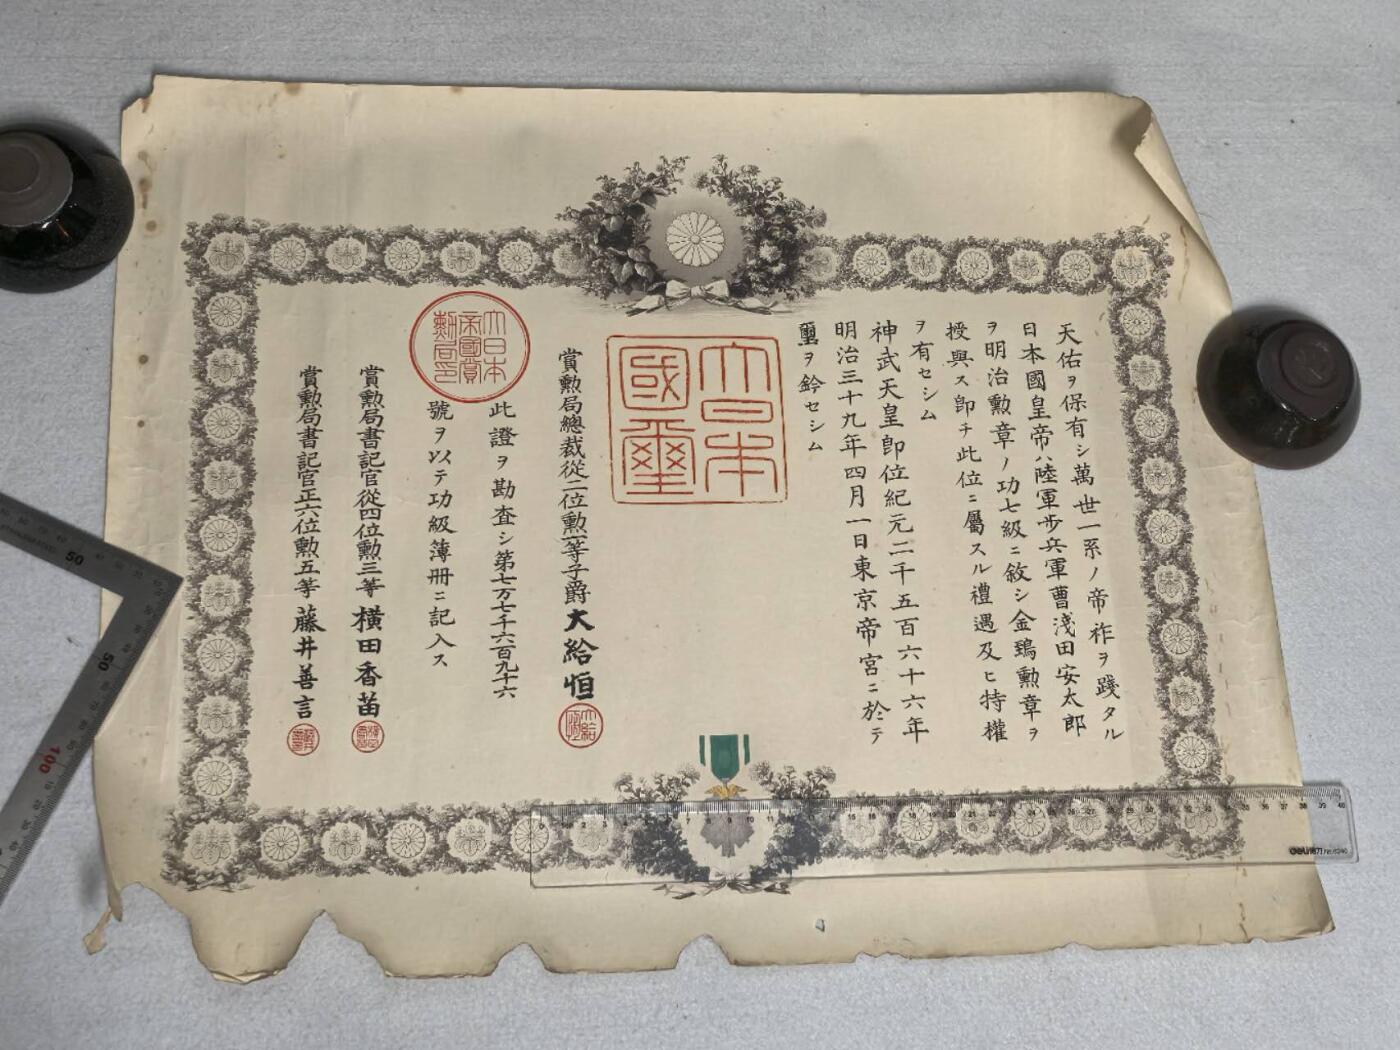 天佑ヲ保有シ萬世一系ノ帝祚ヲ踐タル
日本國皇帝ハ陸軍步兵軍曹淺田安太郎
ヲ明治勲章ノ功七級ニ敘シ金鵄勲章ヲ
授與ス卽チ此位ニ屬スル禮遇及ヒ特權
ヲ有セシム
神武天皇卽位紀元二千五百六十六年
明治三十九年四月一日東京帝宮ニ於テ
璽ヲ鈐セシム
大日本
國璽
賞勲局總裁從二位勲一等子爵大給恒
大給恒
此證ヲ勘査シ第七万七千六百九十六
號ヲ以テ功級簿冊ニ記入ス
大日本
帝國賞
勲局印
賞勲局書記官從四位勲三等橫田香苗
賞勲局書記官正六位勲五等藤井善言
50
50
100
deli